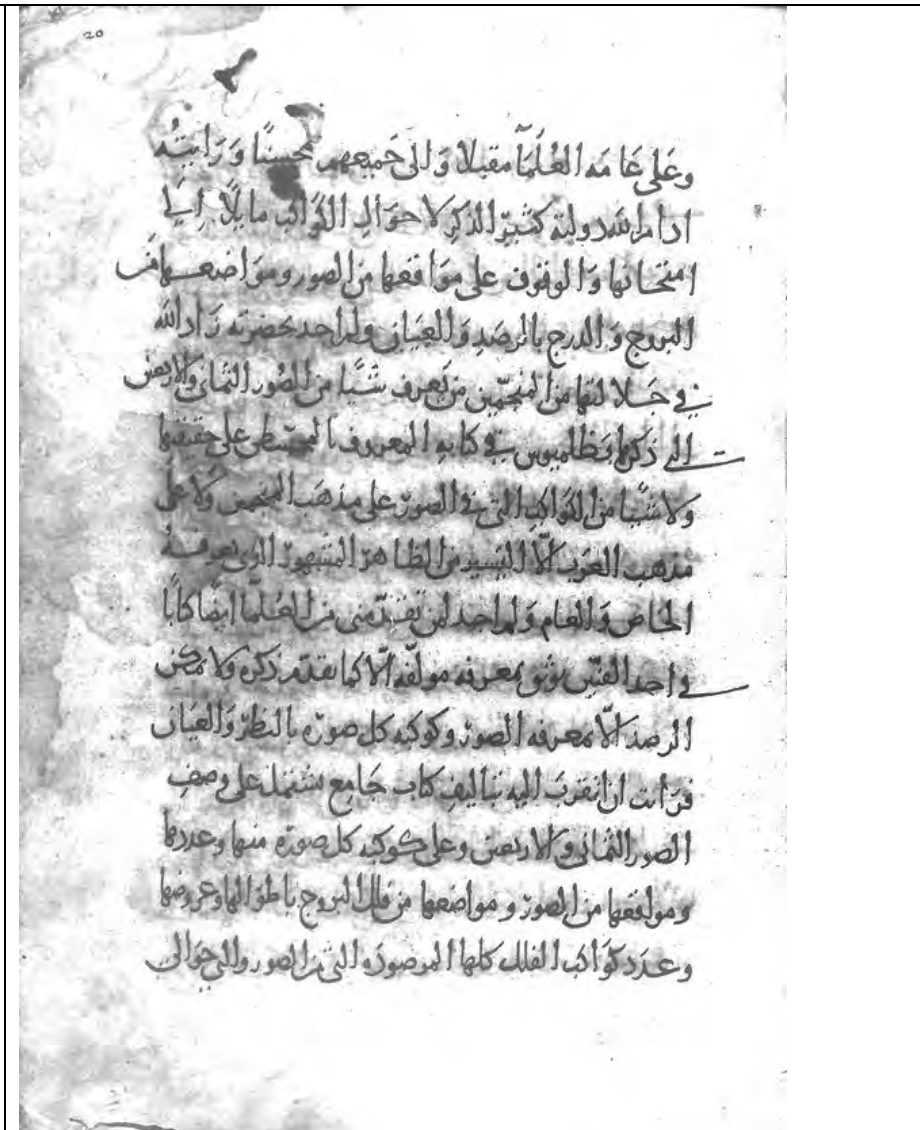 20
وعلى عامه العلما مقبلا والى جميعهم محسنا ورايته
ادام الله دولته كثير الذكر لاحوال الكواكب مايلا الى
امتحانها والوقوف على مواقعها من الصور ومواضعها من
البروج والدرج بالرصد والعيان ولم احد بحضرته زاد الله
في جلالتها من المنجمين من يعرف شيا من الصور الثماني والاربعين
التي ذكرها بطلميوس في كتابه المعروف بالمجسطي على حقيقتها
ولا شيا من الكواكب التي في الصور على مذهب المنجمين ولا على
مذهب العرب الا اليسير من الظاهر المشهور الذي يعرفه
الخاص والعام ولم احد لمن تقدمني من العلما ايضا كتابا
في احد الفنين يوثق بمعرفه مولفه الا كما تقدم ذكره ولا يمكن
الرصد الا بمعرفه الصور وكوكبه كل صوره بالنظر والعيان
فرايت ان اتقرب اليه بتاليف كتاب جامع يشتمل على وصف
الصور الثماني والاربعين وعلى كوكبه كل صوره منها وعددها
ومواقعها من الصور ومواضعها من فلك البروج باطوالها وعروضها
وعدد كواكب الفلك كلها المرصودة التي من الصور والتي حوالى